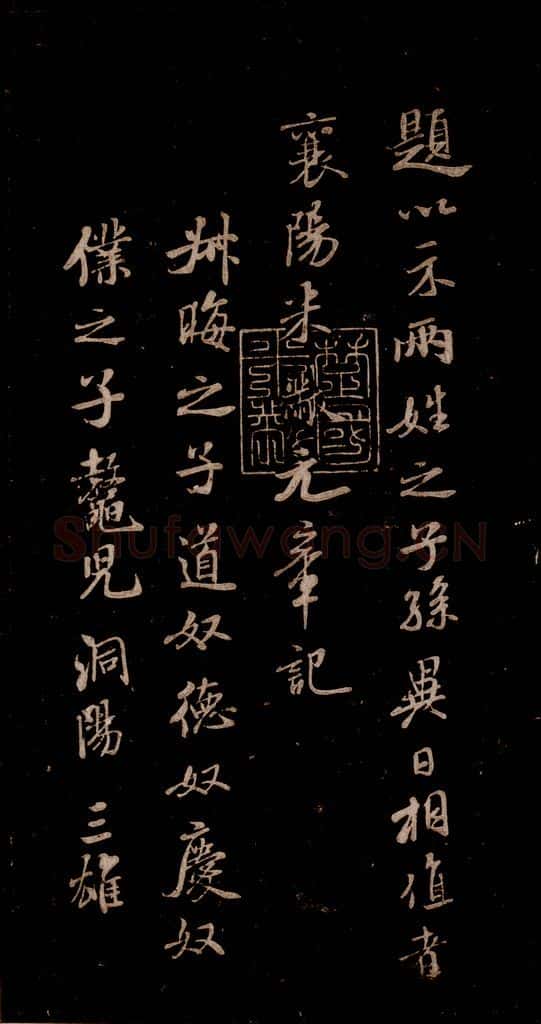 題以示兩姓之子孫異日相值者
襄陽米黻元章記
叔晦之子道奴德奴慶奴
僕之子鼇兒洞陽三雄
Shufawang.CN